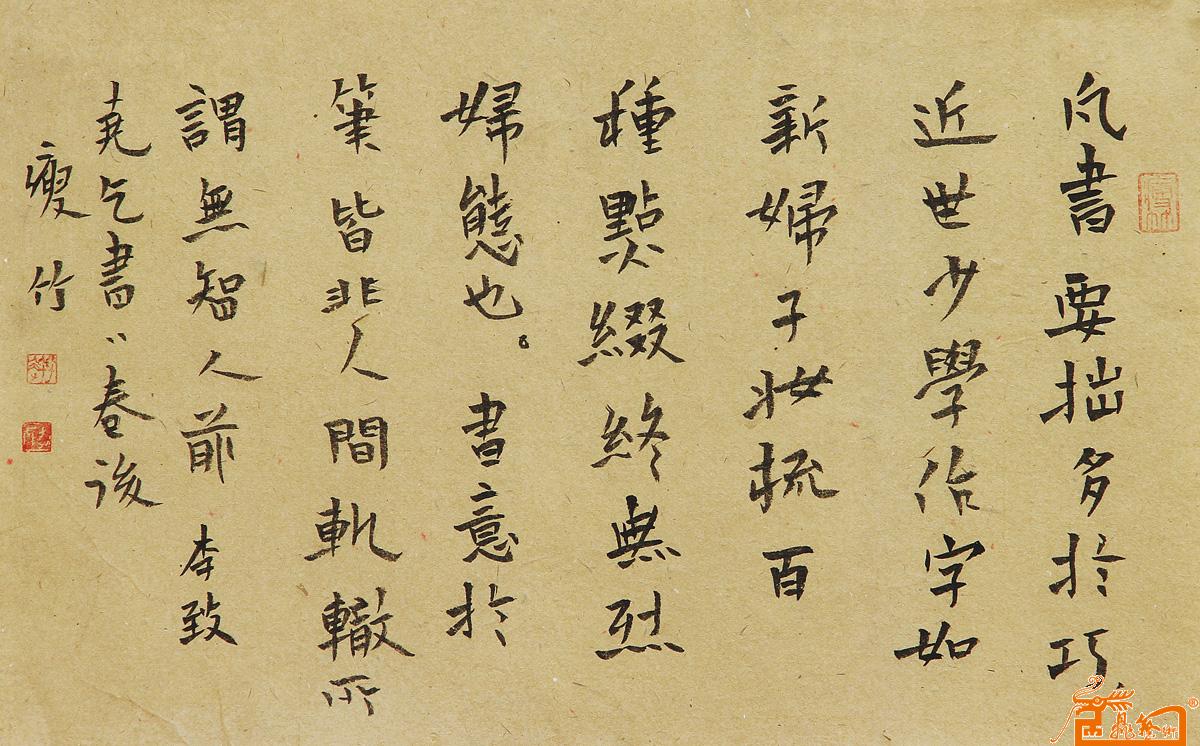 凡書要拙多於巧
近世少學作字如
新婦子妝梳百
種點綴終無烈
婦態也。書意於
筆皆非人間軌轍所
謂無智人前 李致
堯乞書〻卷後
瘦竹